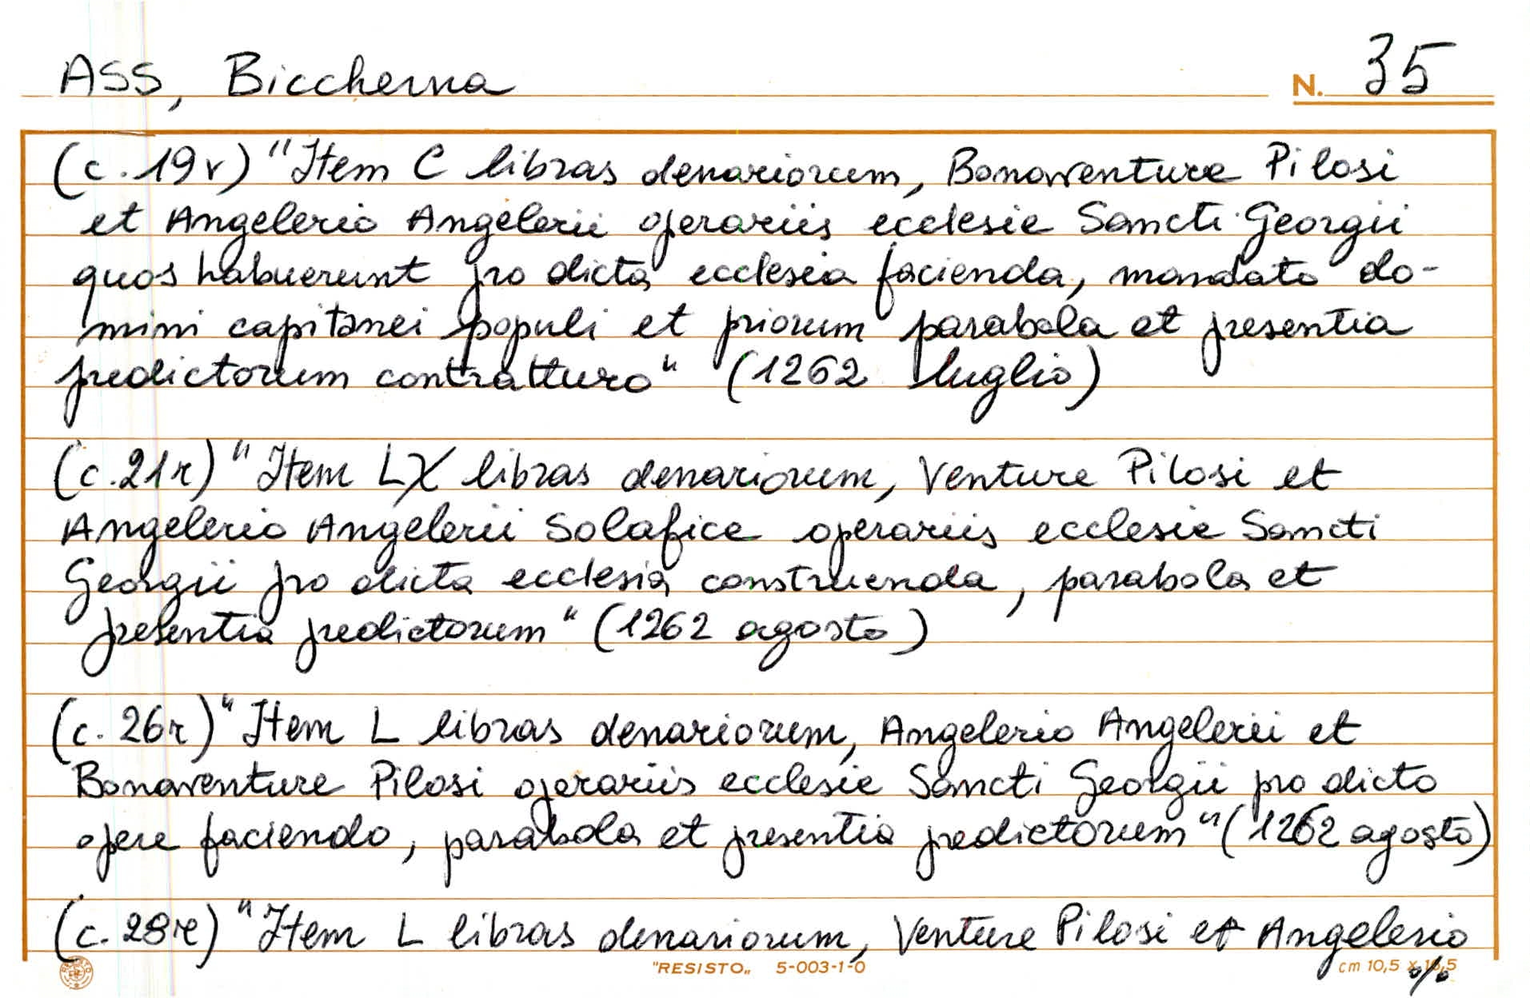 ASS, Biccherna
N. 35
(c. 19v) "Item C libras denariorum, Bonaventure Pilosi
et Angelerio Angelerii operariis ecclesie Sancti Georgii
quos habuerunt pro dicta ecclesia facienda, mandato do-
mini capitanei populi et priorum parabola et presentia
predictorum contratturo" (1262 luglio)
(c. 21r) "Item LX libras denariorum, Venture Pilosi et
Angelerio Angelerii Solafice operariis ecclesie Sancti
Georgii pro dicta ecclesia construenda, parabola et
presentia predictorum" (1262 agosto)
(c. 26r) "Item L libras denariorum, Angelerio Angelerii et
Bonaventure Pilosi operariis ecclesie Sancti Georgii pro dicto
opere faciendo, parabola et presentia predictorum" (1262 agosto)
(c. 28r) "Item L libras denariorum, Venture Pilosi et Angelerio
"RESISTO„ 5-003-1-0
cm 10,5 x 16,5
%